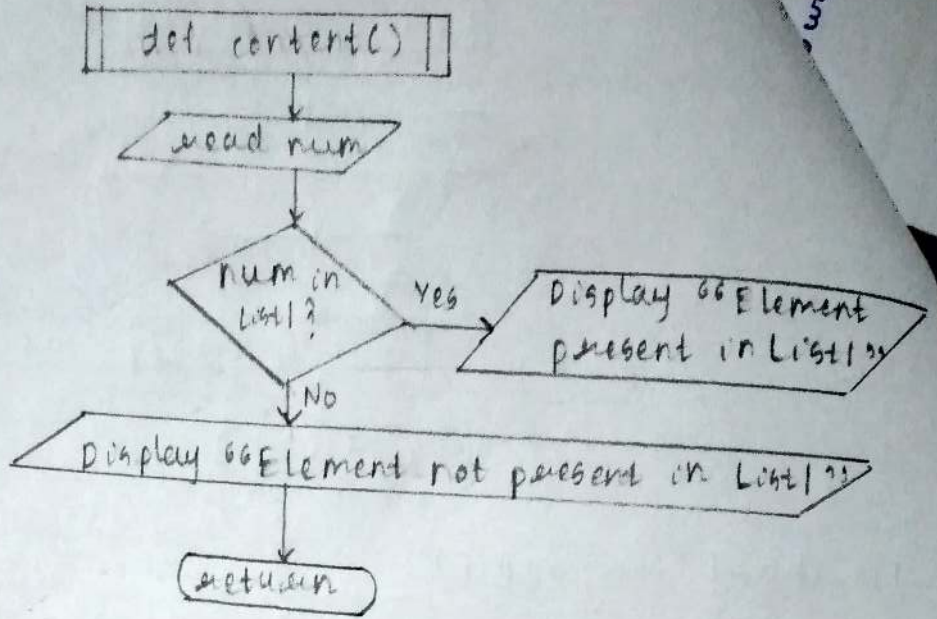 def content()
read num
num in
List1?
Yes
Display “Element
present in List1”
No
Display “Element not present in List1”
return